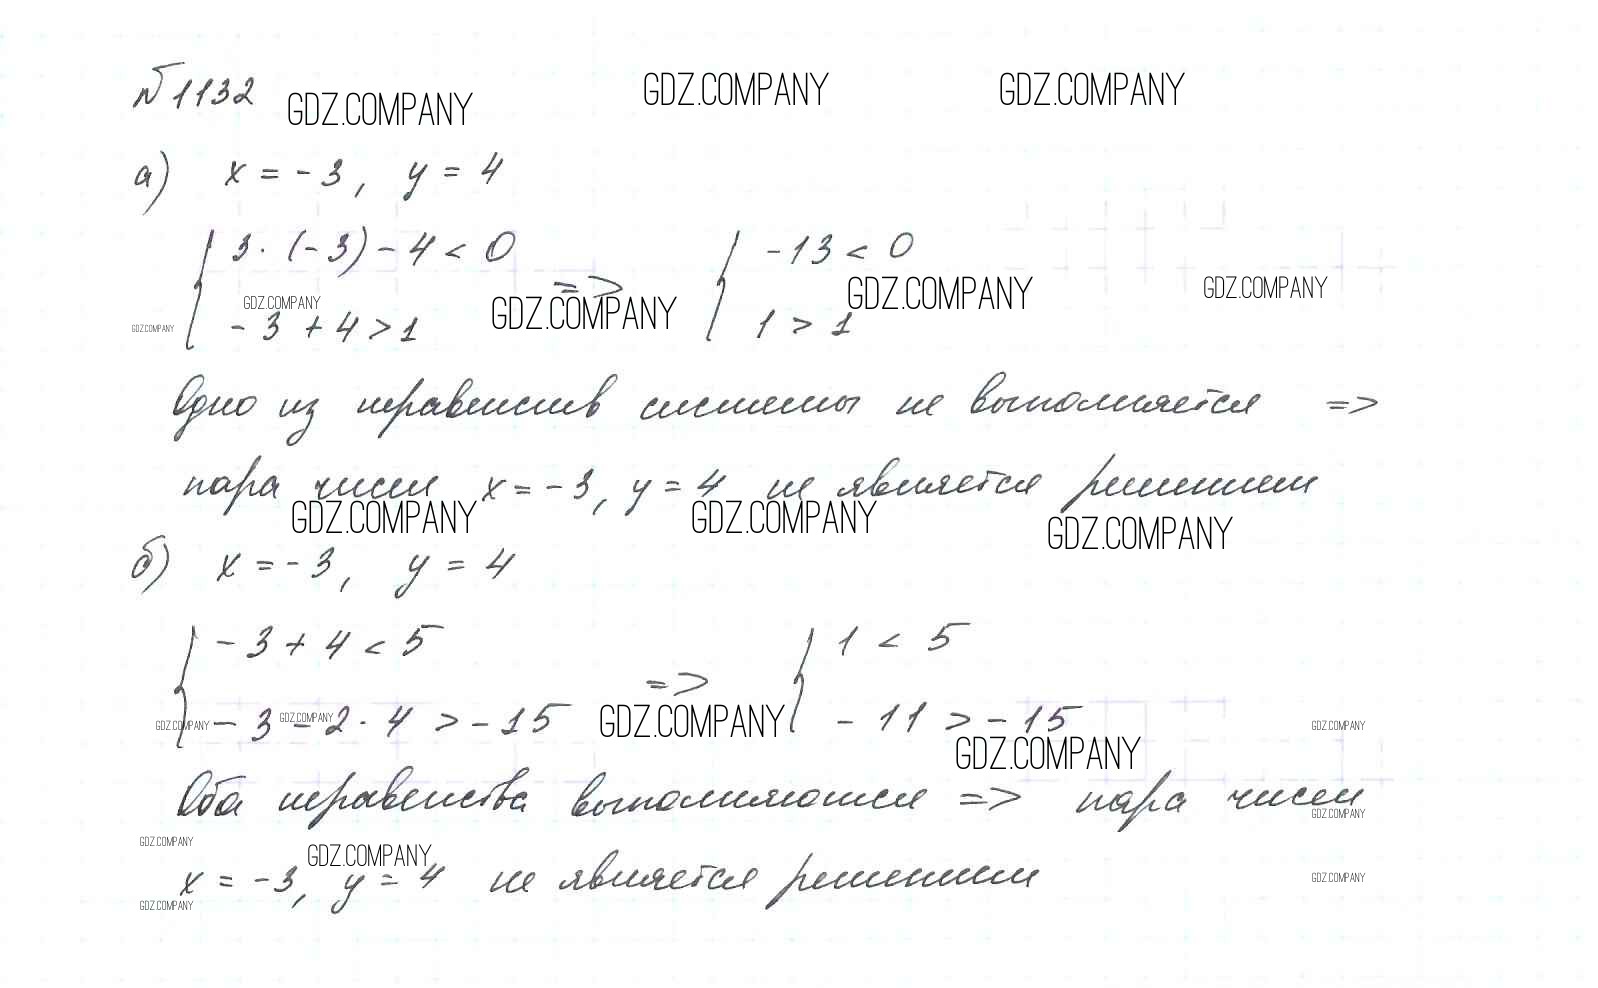 №1132 GDZ.COMPANY GDZ.COMPANY GDZ.COMPANY
а) x = -3, y = 4
3·(-3)-4 < 0 => -13 < 0
GDZ.COMPANY GDZ.COMPANY GDZ.COMPANY GDZ.COMPANY GDZ.COMPANY
-3+4>1 1>1
Одно из неравенств системы не выполняется =>
пара чисел x=-3, y=4 не является решением
GDZ.COMPANY GDZ.COMPANY GDZ.COMPANY
б) x = -3, y = 4
-3+4<5 => 1 < 5
-3-2·4 > -15 -11 > -15
GDZ.COMPANY GDZ.COMPANY GDZ.COMPANY GDZ.COMPANY GDZ.COMPANY
Оба неравенства выполняются => пара чисел
GDZ.COMPANY GDZ.COMPANY GDZ.COMPANY
x = -3, y = 4 не является решением
GDZ.COMPANY GDZ.COMPANY